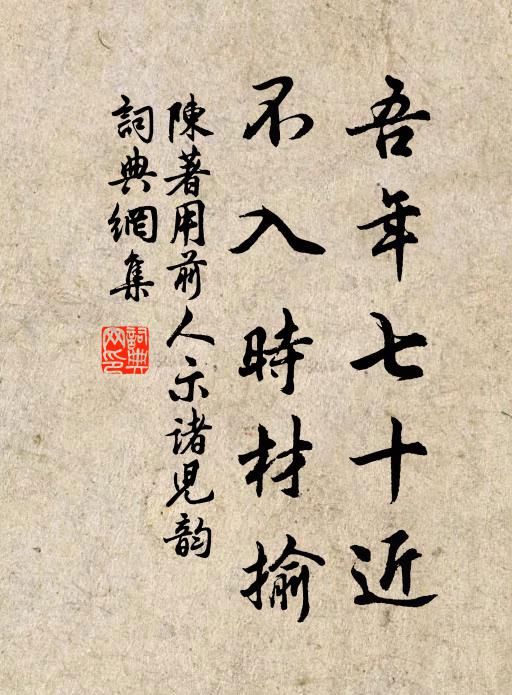 吾年七十近
不入時材揄
陳著用前人示諸兒韵
詞典網集
詞典网印